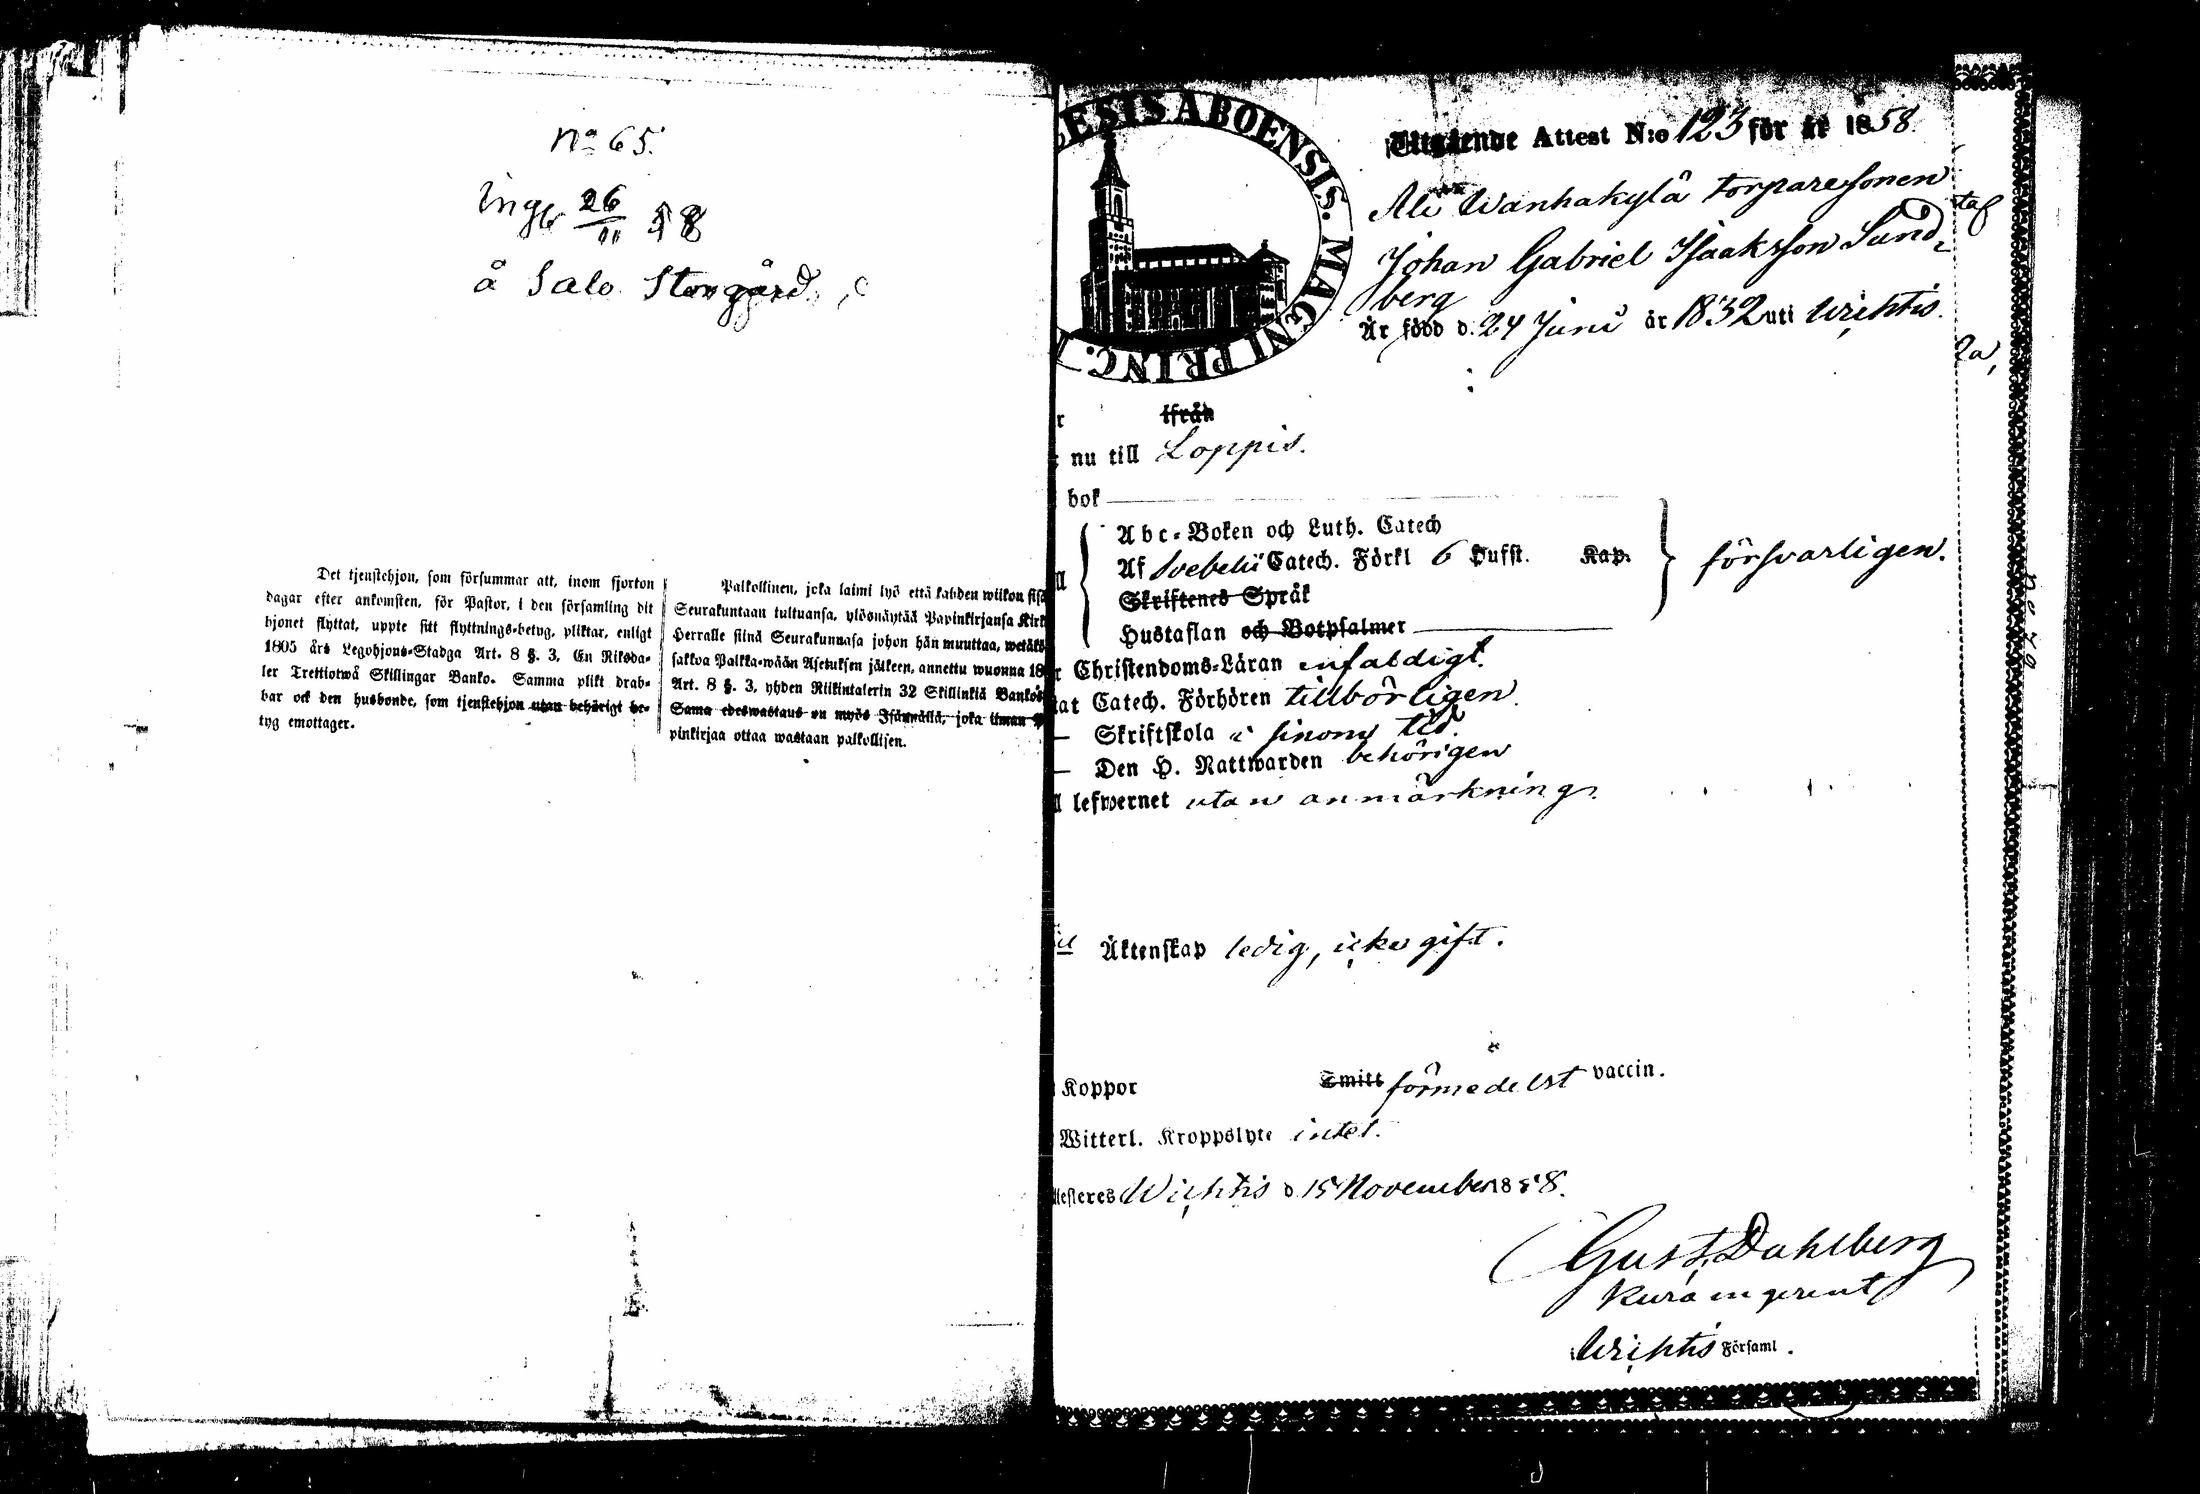 No 65.
Ingf 26/11 58
å Salo Storgård
Det tjenstehjon, som försummar att, inom fjorton
dagar efter ankomsten, för Pastor, i den församling dit
hjonet flyttat, uppte sitt flyttnings-betyg, pliktar, enligt
1805 års Legohjons-Stadga Art. 8 §. 3, En Riksda-
ler Trettiotwå Skillingar Banko. Samma plikt drab-
bar ock den husbonde, som tjenstehjon utan behörigt be-
tyg emottager.
Palkollinen, joka laimi lyö että kahden wiikon sisä
Seurakuntaan tultuansa, ylösnäytää Papinkirjansa Kirk
Herralle siinä Seurakunnasa johon hän muuttaa, wetäkö
sakkoa Palkka-wään Asetuksen jälkeen, annettu wuonna 18
Art. 8 §. 3, yhden Riikintalerin 32 Skillinkiä Bankos
Sama edeswastaus on myös Isännällä, joka ilman P
pinkirjaa ottaa wastaan palkollisen.
ESIS ABOENSIS. MAGNI PRINC.
Utgående Attest N:o 123 för år 1858.
Ale Wanhakylä torparesonen
Johan Gabriel Isaaksson Sund-
berg
Är född d. 24 Juni år 1832 uti Wichtis.
ifrån
nu till Loppis.
bok
Abc-Boken och Luth. Catech
Af Svebelii Catech. Förkl 6 Hufst. Kap.
Skriftenes Språk
Hustaflan och Botpsalmer
försvarligen.
r Christendoms-Läran enfaldigt.
tat Catech. Förhören tillbörligen.
— Skriftskola i sinom tid.
— Den H. Nattwarden behörigen
ll lefwernet utan anmärkning.
Äktenskap ledig, icke gift.
Koppor Smitt förmedelst vaccin.
Witterl. Kroppslyte intet.
testeres Wichtis d 15 November 1858.
Gust. Dahlberg
Kura in gerent
i Wichtis Församl.